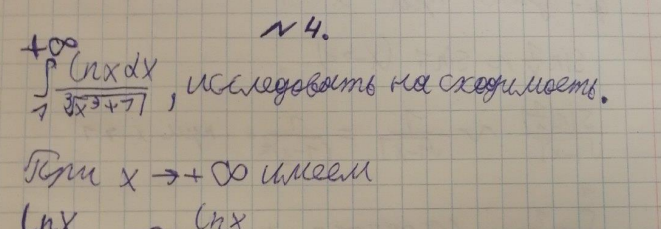 № 4.
+∞
∫ ln x dx / ∛(x³+1), исследовать на сходимость.
1
При x → +∞ имеем
ln x ln x